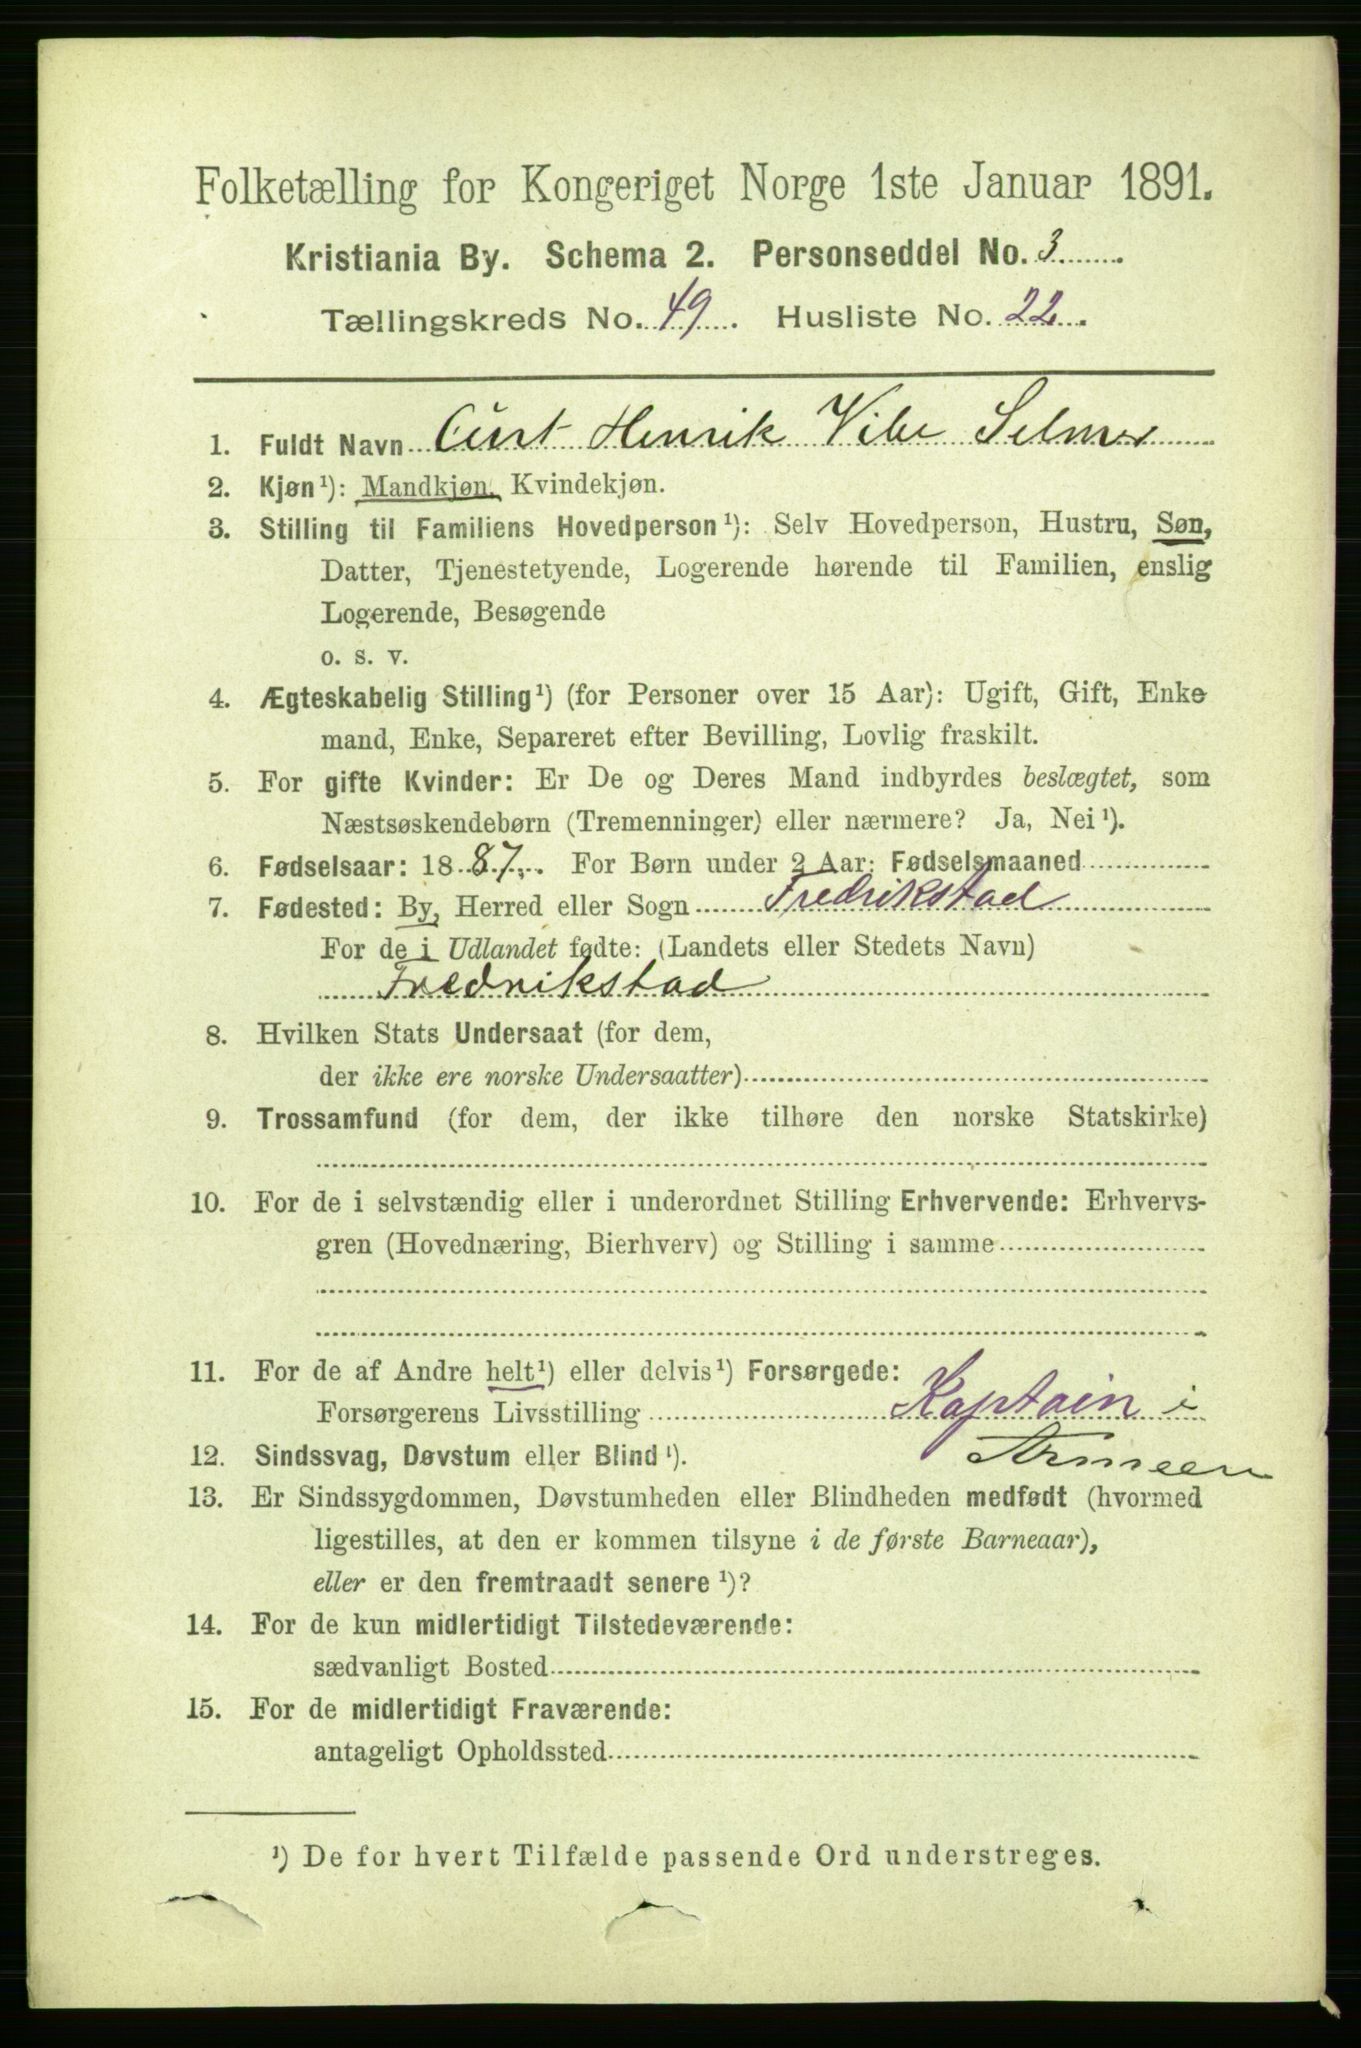 Folketælling for Kongeriget Norge 1ste Januar 1891.
Kristiania By. Schema 2. Personseddel No. 3
Tællingskreds No. 49. Husliste No. 22.
1. Fuldt Navn Curt Henrik Vibe Selmer
2. Kjøn¹): Mandkjøn, Kvindekjøn.
3. Stilling til Familiens Hovedperson¹): Selv Hovedperson, Hustru, Søn,
Datter, Tjenestetyende, Logerende hørende til Familien, enslig
Logerende, Besøgende
o. s. v.
4. Ægteskabelig Stilling¹) (for Personer over 15 Aar): Ugift, Gift, Enke
mand, Enke, Separeret efter Bevilling, Lovlig fraskilt.
5. For gifte Kvinder: Er De og Deres Mand indbyrdes beslægtet, som
Næstsøskendebørn (Tremenninger) eller nærmere? Ja, Nei¹).
6. Fødselsaar: 1887. For Børn under 2 Aar: Fødselsmaaned
7. Fødested: By, Herred eller Sogn Fredrikstad
For de i Udlandet fødte: (Landets eller Stedets Navn)
Fredrikstad
8. Hvilken Stats Undersaat (for dem,
der ikke ere norske Undersaatter)
9. Trossamfund (for dem, der ikke tilhøre den norske Statskirke)
10. For de i selvstændig eller i underordnet Stilling Erhvervende: Erhvervs-
gren (Hovednæring, Bierhverv) og Stilling i samme
11. For de af Andre helt¹) eller delvis¹) Forsørgede:
Forsørgerens Livsstilling Kaptain i
Armeen
12. Sindssvag, Døvstum eller Blind¹).
13. Er Sindssygdommen, Døvstumheden eller Blindheden medfødt (hvormed
ligestilles, at den er kommen tilsyne i de første Barneaar),
eller er den fremtraadt senere¹)?
14. For de kun midlertidigt Tilstedeværende:
sædvanligt Bosted
15. For de midlertidigt Fraværende:
antageligt Opholdssted
¹) De for hvert Tilfælde passende Ord understreges.